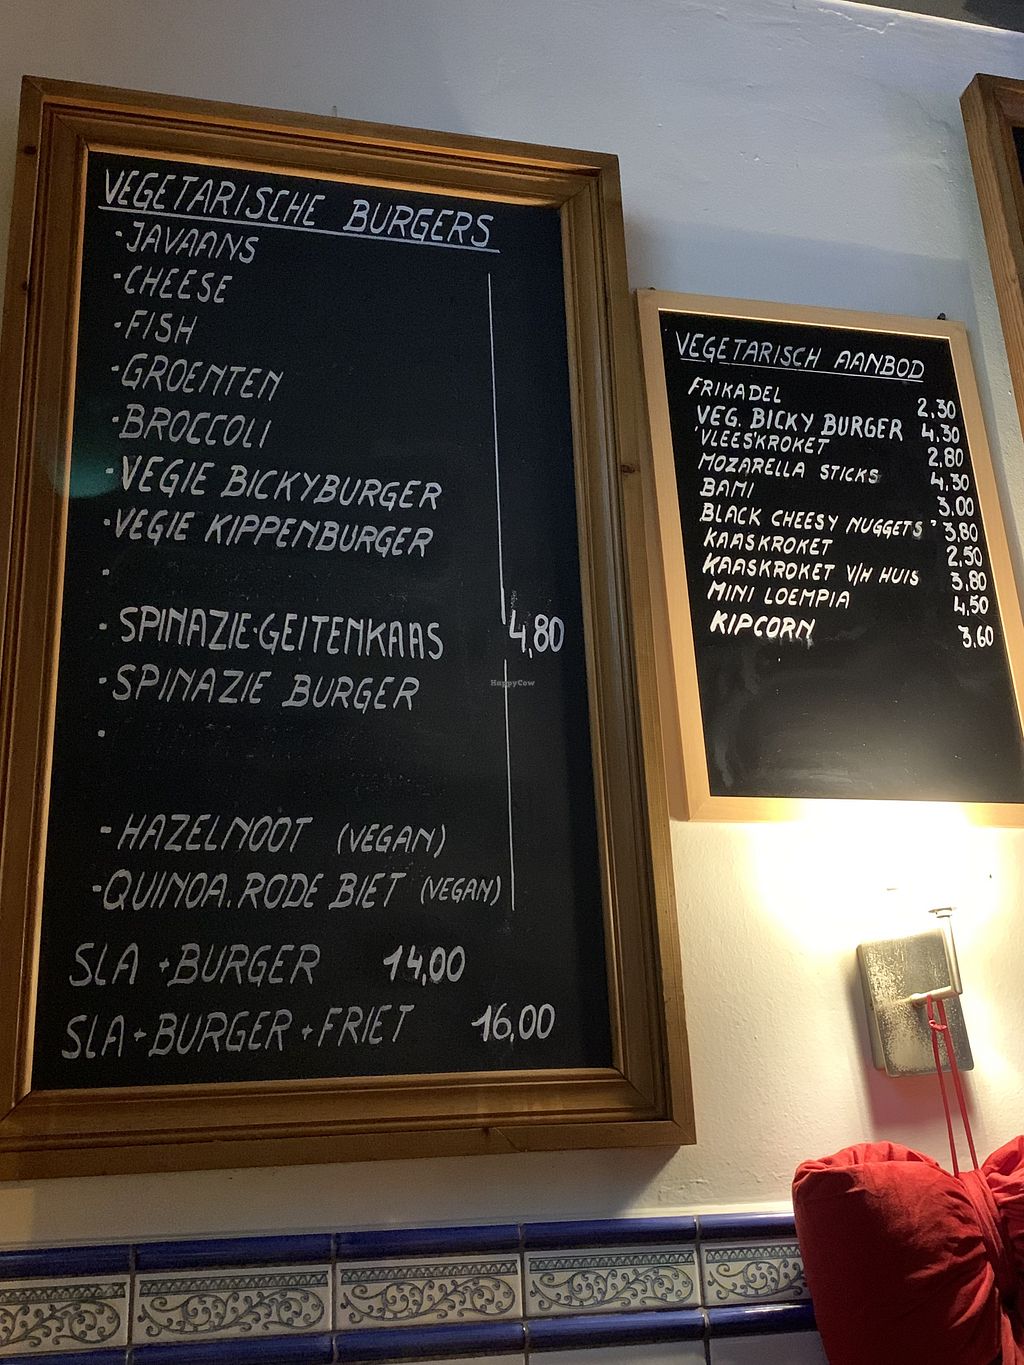 VEGETARISCHE BURGERS
·JAVAANS
·CHEESE
·FISH
·GROENTEN
·BROCCOLI
·VEGIE BICKYBURGER
·VEGIE KIPPENBURGER
·
·SPINAZIE·GEITENKAAS 4,80
·SPINAZIE BURGER
·
-HAZELNOOT (VEGAN)
-QUINOA.RODE BIET (VEGAN)
SLA +BURGER 14,00
SLA+BURGER+FRIET 16,00
VEGETARISCH AANBOD
FRIKADEL 2,30
VEG. BICKY BURGER 4,30
'VLEES'KROKET 2,80
MOZARELLA STICKS 4,30
BAMI 3,00
BLACK CHEESY NUGGETS" 3,80
KAASKROKET 2,50
KAASKROKET V/H HUIS 3,80
MINI LOEMPIA 4,50
KIPCORN 3,60
HappyCow